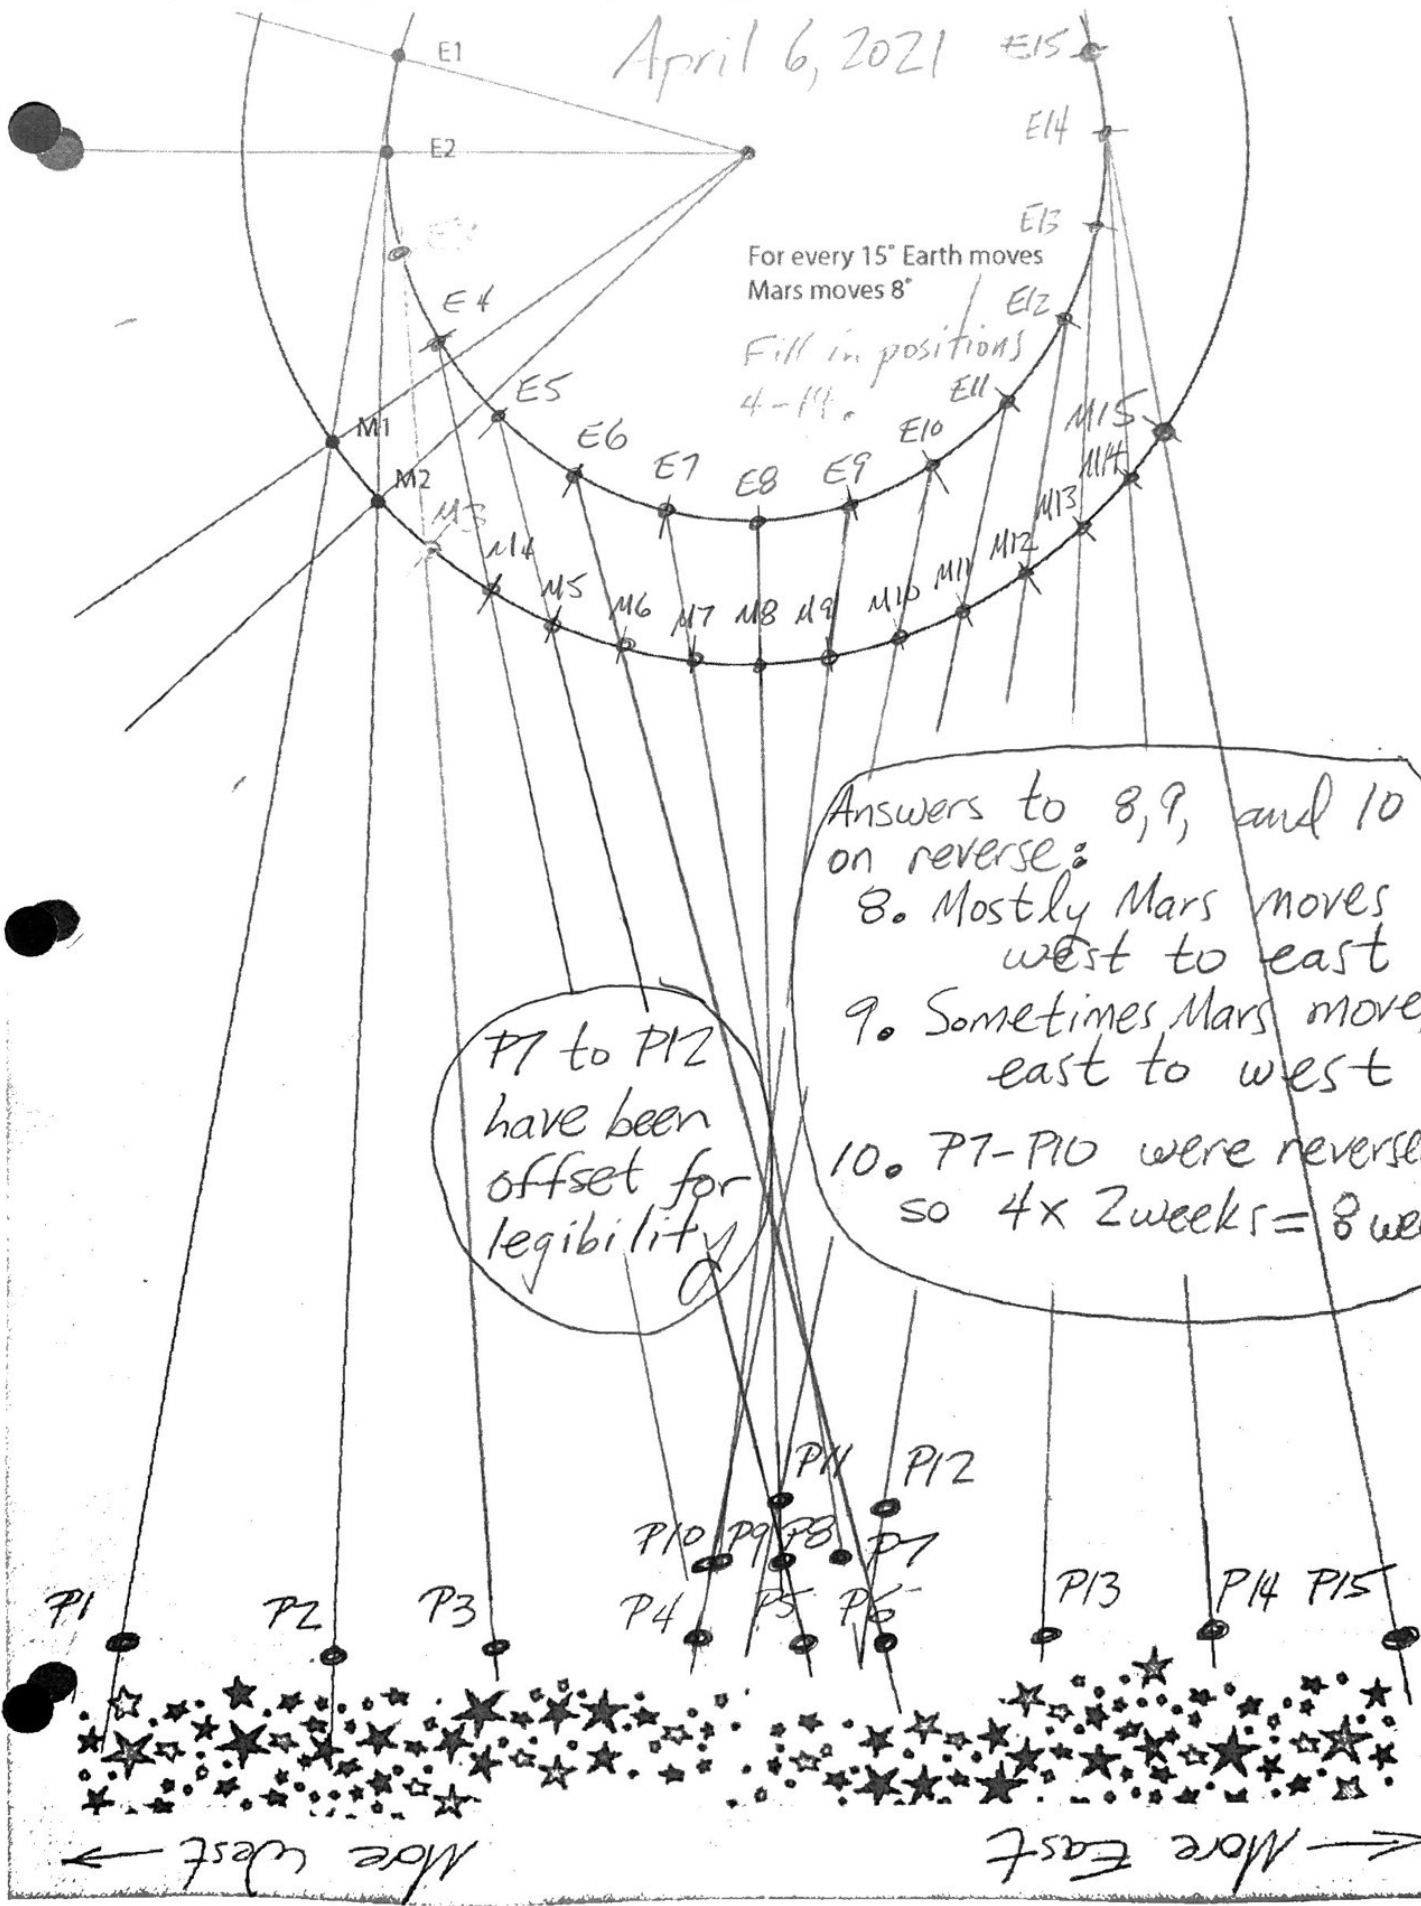 April 6, 2021
E1
E2
E4
E5
E6
E7
E8
E9
E10
E11
E12
E13
E14
E15
For every 15° Earth moves
Mars moves 8°
Fill in positions
4-14.
M1
M2
M3
M4
M5
M6
M7
M8
M9
M10
M11
M12
M13
M14
M15
Answers to 8, 9, and 10
on reverse:
8. Mostly Mars moves
west to east
9. Sometimes Mars move
east to west
10. P7-P10 were reverse
so 4x 2weeks = 8 we
P7 to P12
have been
offset for
legibility
P11
P12
P10
P9
P8
P7
P1
P2
P3
P4
P5
P6
P13
P14
P15
More West
More East